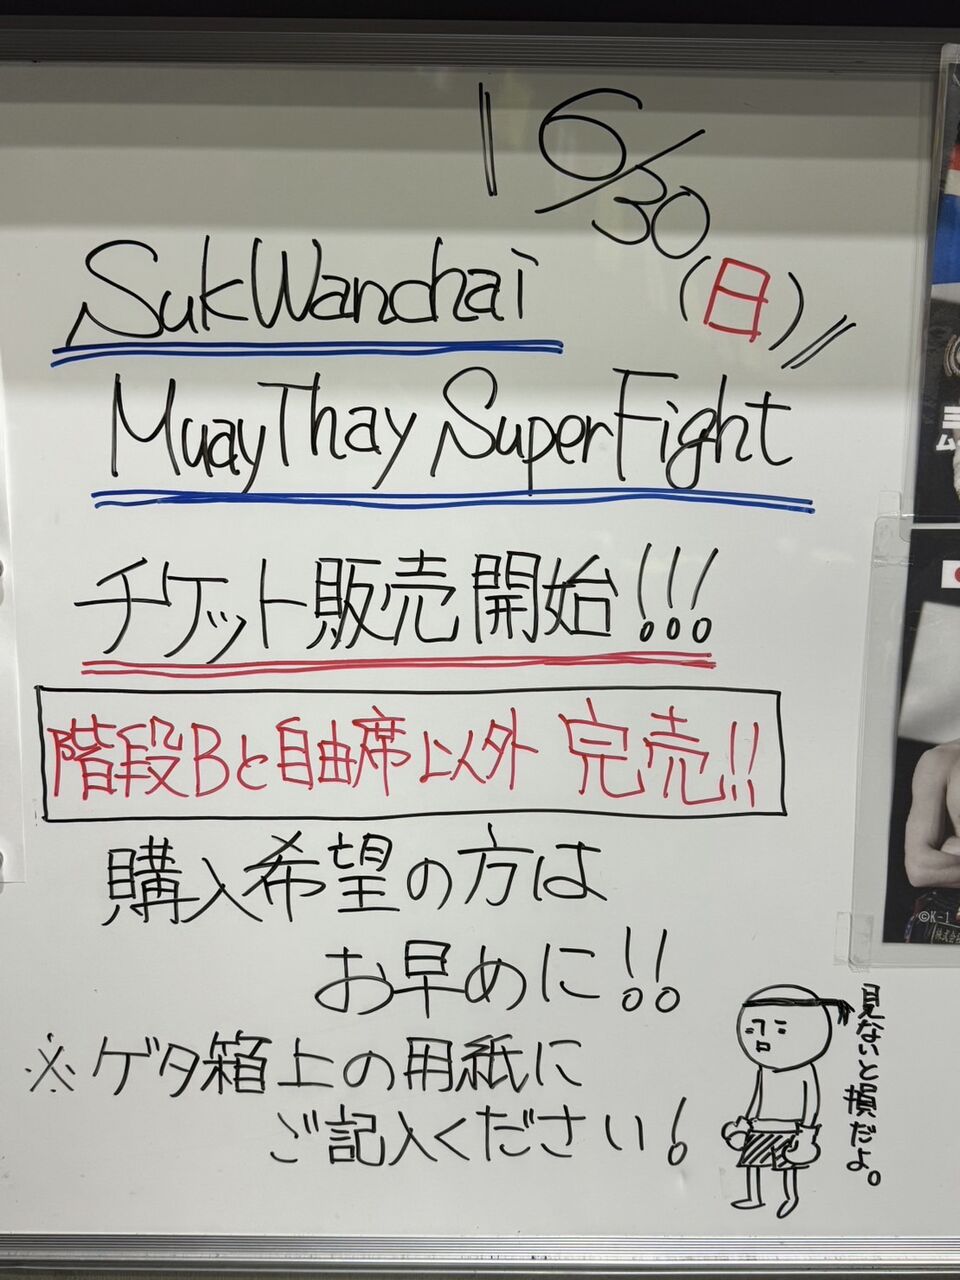 6/30
(日)
SukWanchai
MuayThay SuperFight
チケット販売開始!!!
階段Bと自由席以外 完売!!
購入希望の方は
お早めに!!
※ゲタ箱上の用紙に
ご記入ください!
見ないと損だよ。
©K-1
株式会